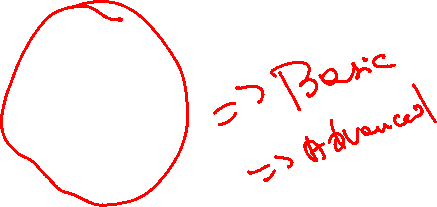 => Basic
=> Advanced